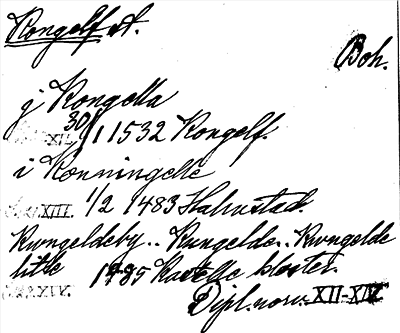 Kongelf st.
Boh.
j Kongella
XII. 30/1 1532 Kongelf.
i Konningelle
XIII. 1/2 1483 Halmstad.
Kwngeldeby.. Kungelde.. Kwngelde
litle 1485 Kastelle kloster.
XIV. Dipl. norv. XII-XIV